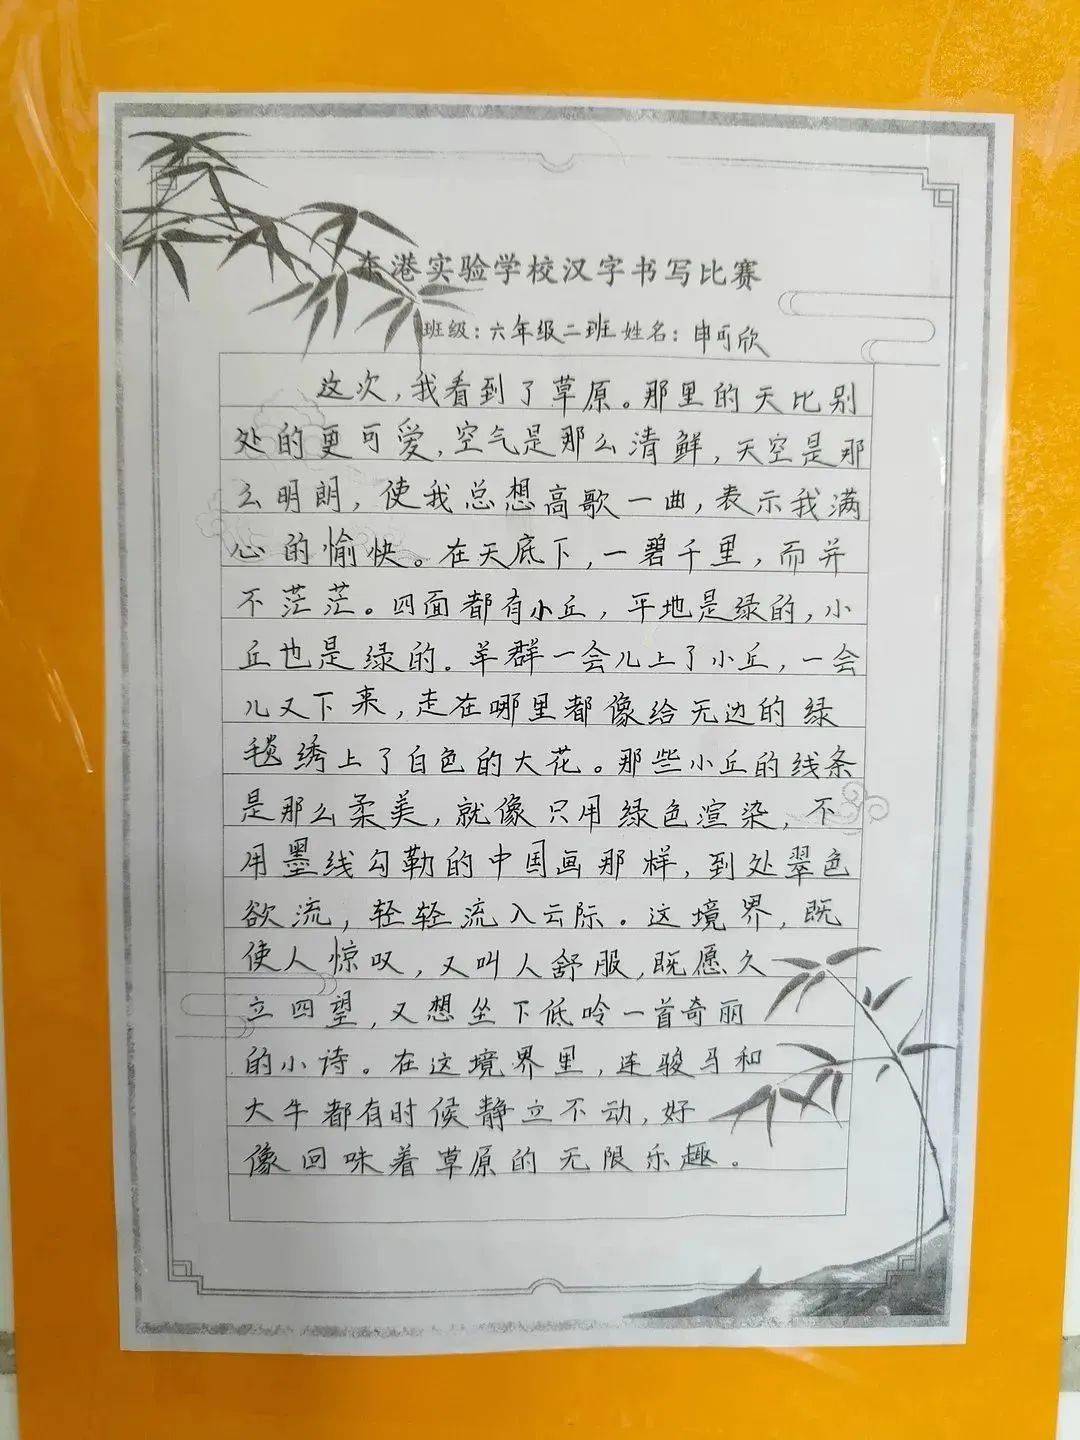 东港实验学校汉字书写比赛
班级：六年级二班 姓名：申可欣
这次，我看到了草原。那里的天比别
处的更可爱，空气是那么清鲜，天空是那
么明朗，使我总想高歌一曲，表示我满
心的愉快。在天底下，一碧千里，而并
不茫茫。四面都有小丘，平地是绿的，小
丘也是绿的。羊群一会儿上了小丘，一会
儿又下来，走在哪里都像给无边的绿
毯绣上了白色的大花。那些小丘的线条
是那么柔美，就像只用绿色渲染，不
用墨线勾勒的中国画那样，到处翠色
欲流，轻轻流入云际。这境界，既
使人惊叹，又叫人舒服，既愿久
立四望，又想坐下低吟一首奇丽
的小诗。在这境界里，连骏马和
大牛都有时候静立不动，好
像回味着草原的无限乐趣。